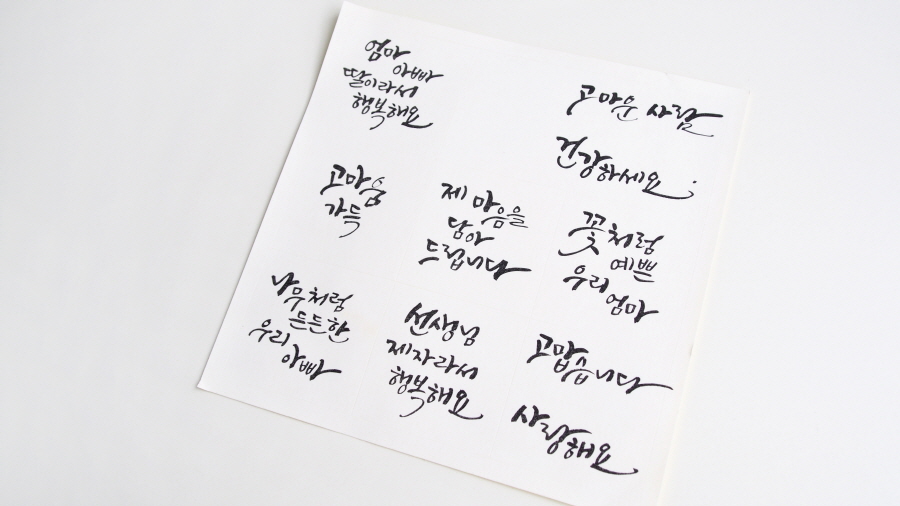 엄마
아빠
딸이라서
행복해요
고마운 사람
건강하세요
고마움
가득
제 마음을
담아
드립니다
꽃처럼
예쁜
우리
엄마
나무처럼
든든한
우리
아빠
선생님
제자라서
행복해요
고맙습니다
사랑해요